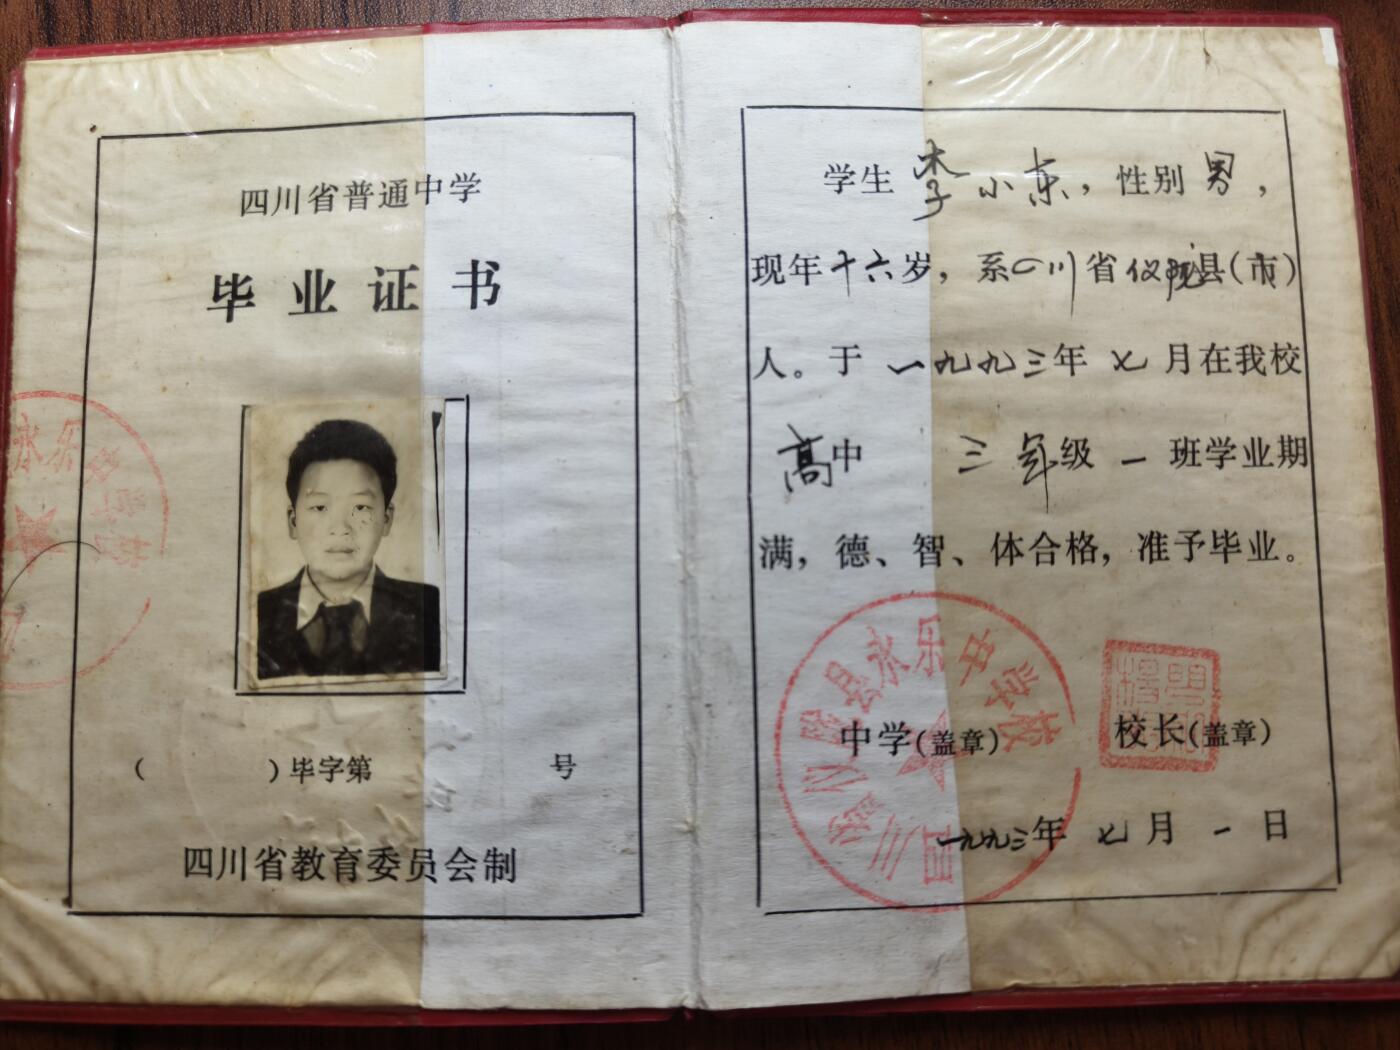 四川省普通中学
毕业证书
永乐中学校
( )毕字第 号
四川省教育委员会制
学生 李小东，性别 男，
现年十六岁，系四川省仪陇县(市)
人。于一九九三年七月在我校
高中 三年级一班学业期
满，德、智、体合格，准予毕业。
四川省仪陇县永乐中学校
中学(盖章) 校长(盖章)
一九九三年七月一日